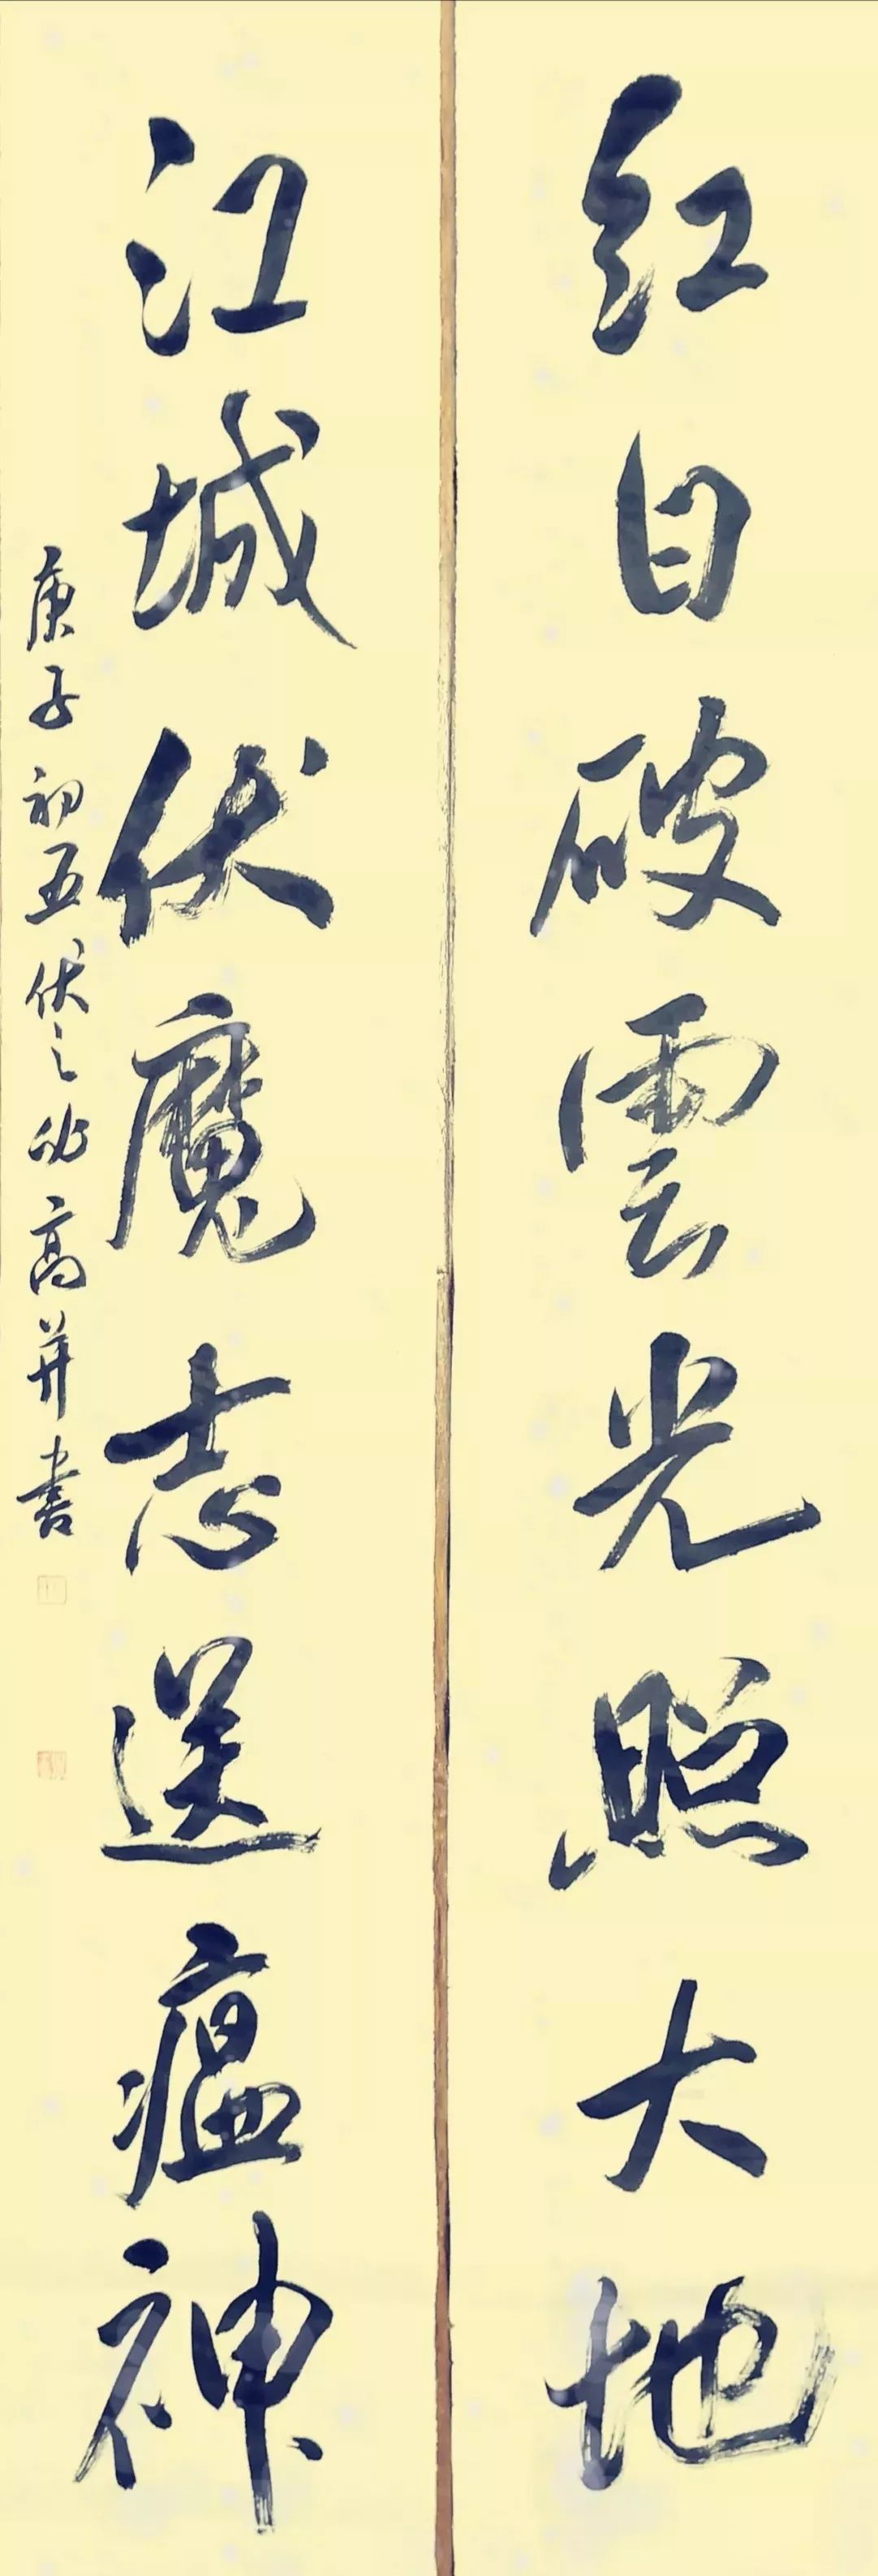 红日破雲光照大地
江城伏魔志送瘟神
庚子初五伏之 高并書